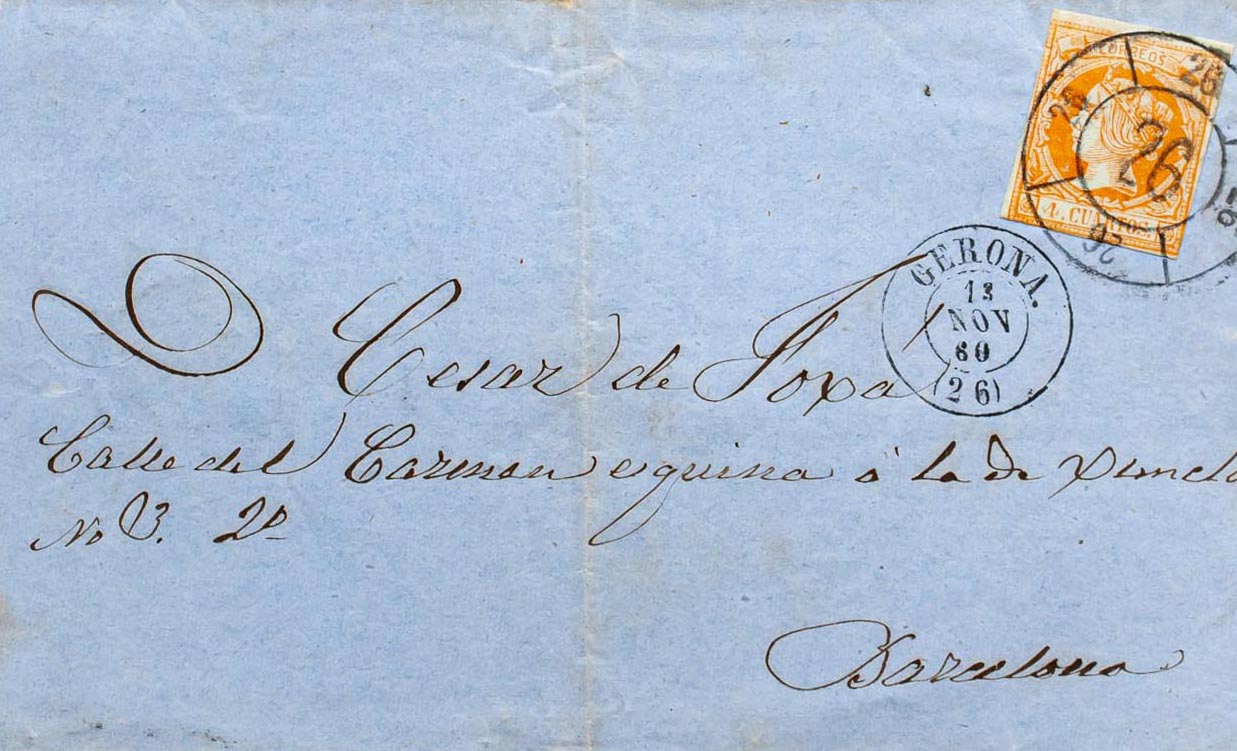 CORREOS
4. CUARTOS.
26 26 26 26
GERONA.
13
NOV
60
(26)
D Cesar de Foxá
Calle del Carmen esquina á la de
No 3. 2º
Barcelona